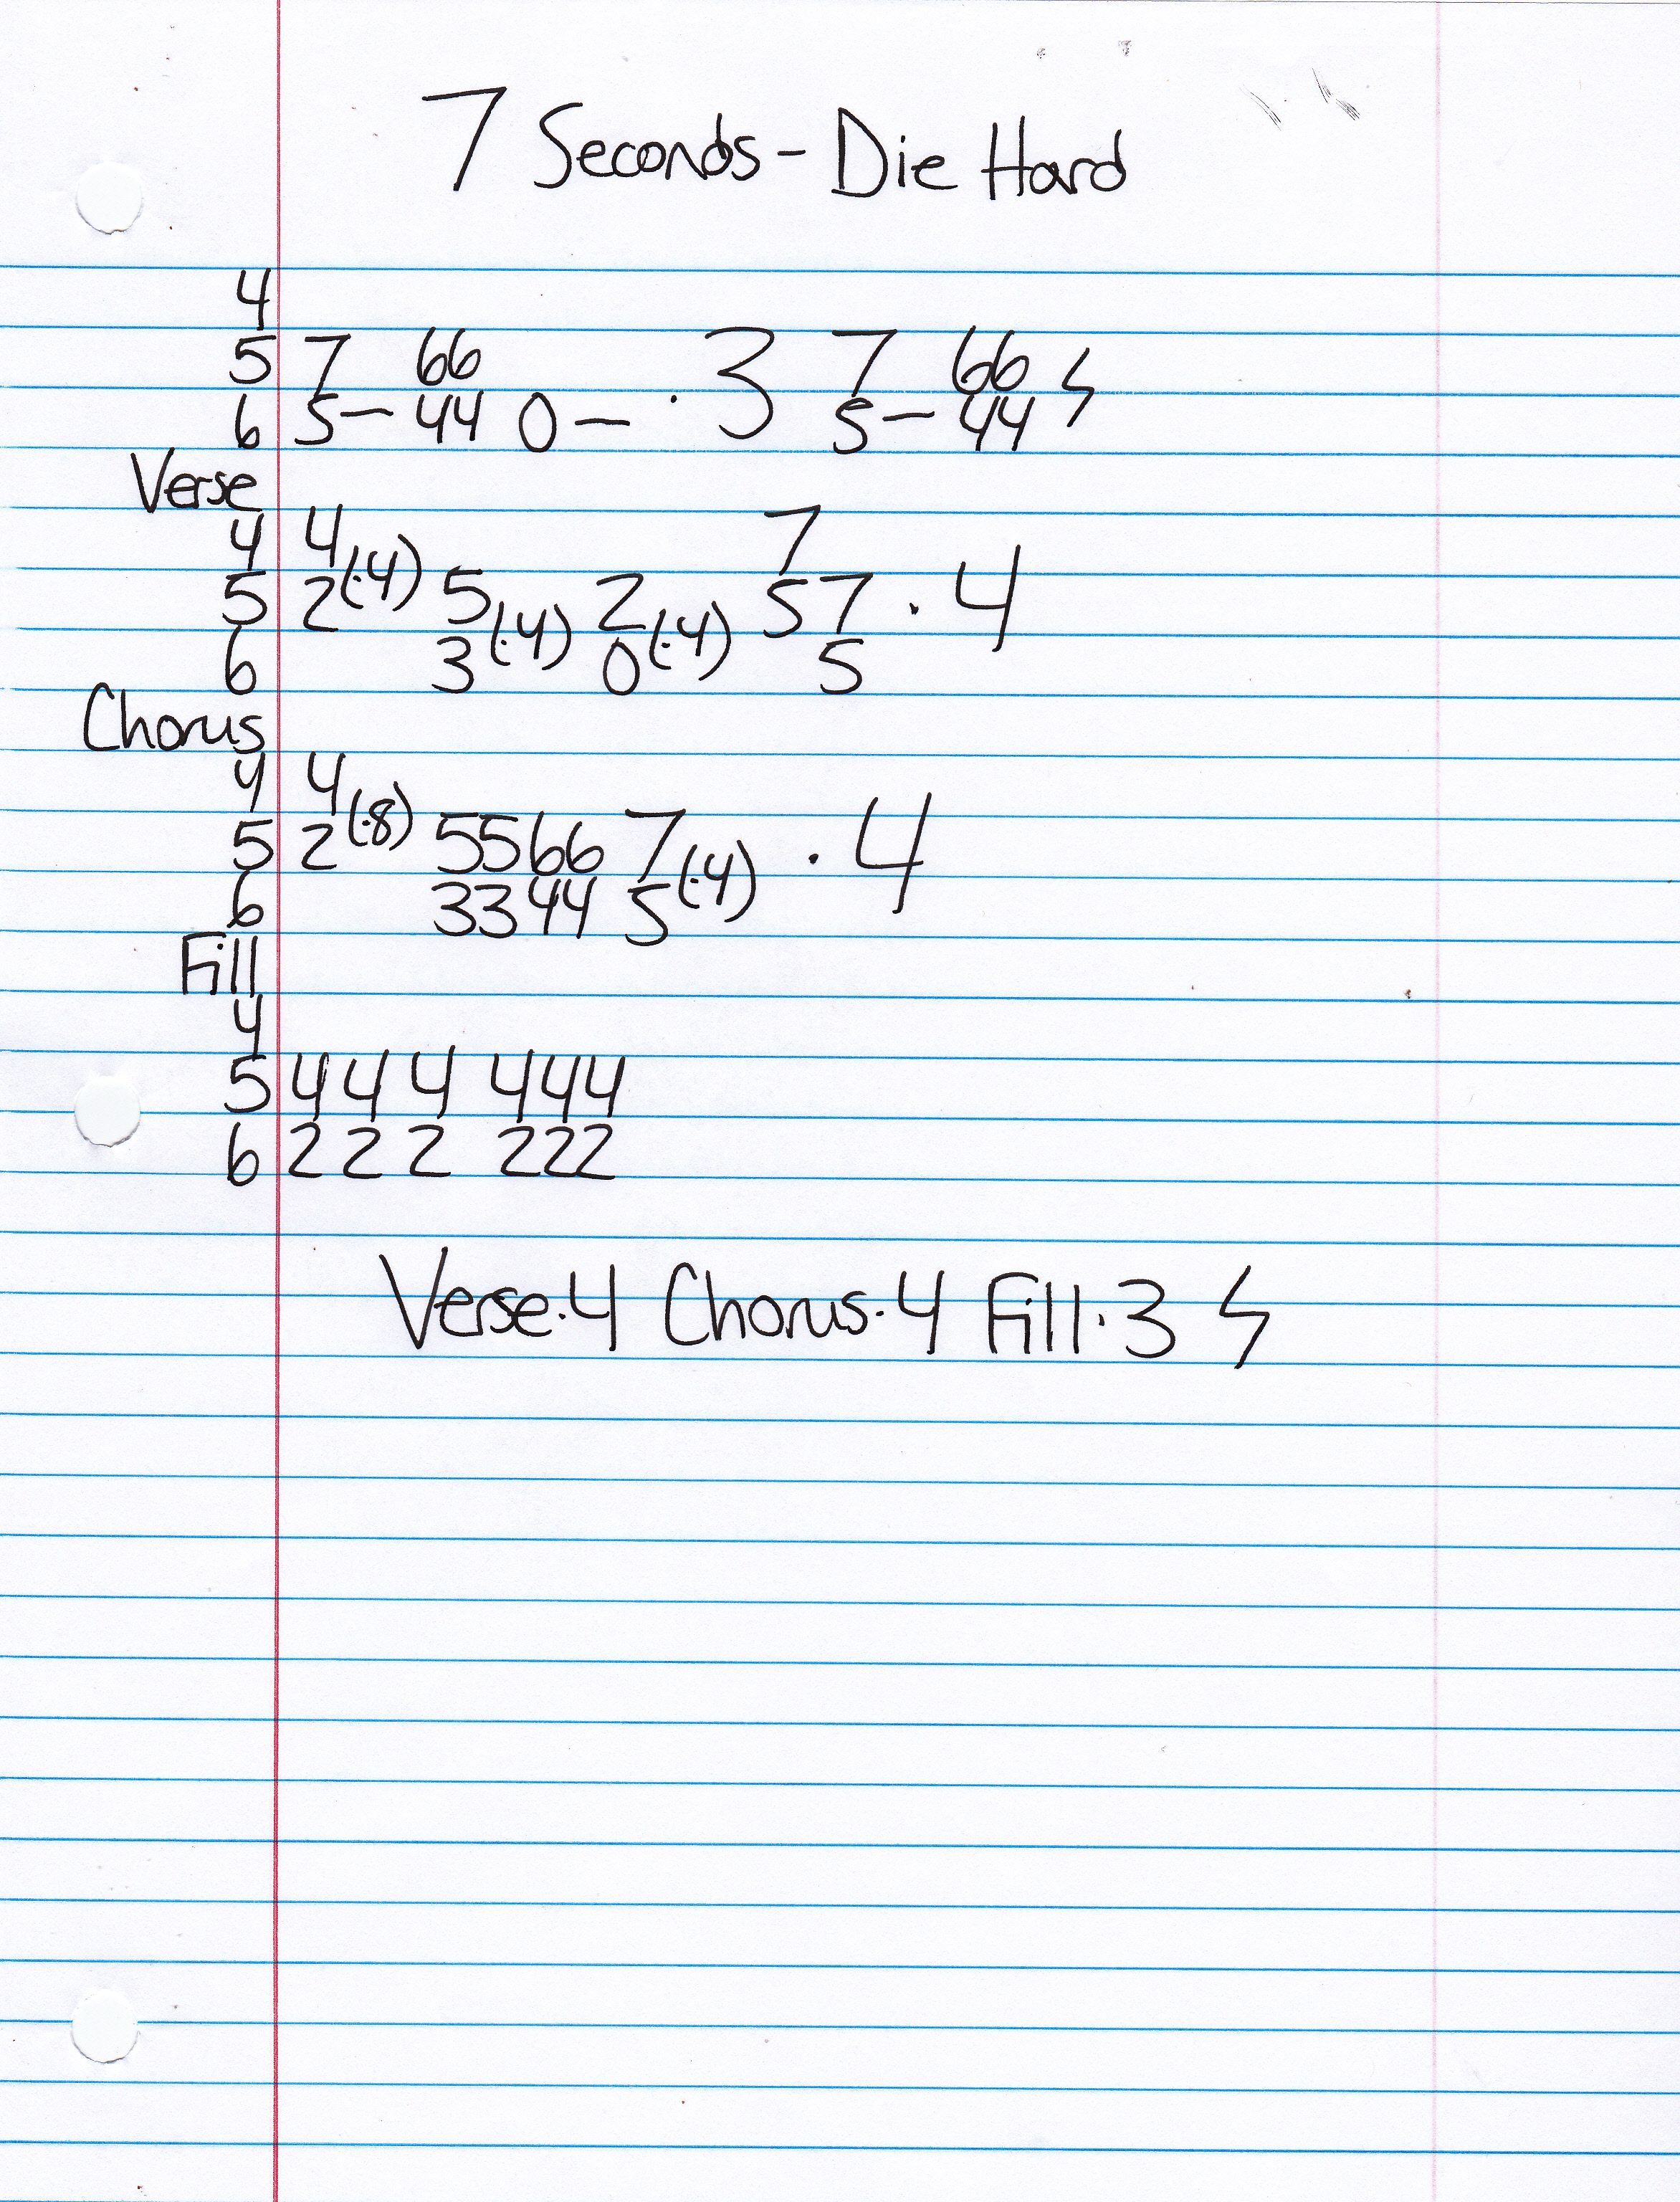 7 Seconds - Die Hard
4
5 7 66 · 3 7 66 ϟ
6 5 — 44 0 — 5 — 44
Verse
4 4 7
5 2 (·4) 5 2 57 · 4
6 3 (·4) 0 (·4) 5
Chorus
4 4
5 2 (·8) 5566 7 · 4
6 3344 5 (·4)
Fill
4
5 4 4 4 444
6 2 2 2 222
Verse·4 Chorus·4 Fill·3 ϟ